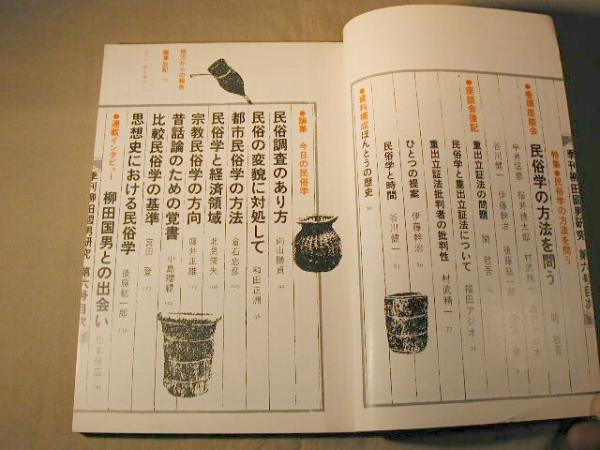 季刊柳田国男研究 第六号目次
特集●民俗学の方法を問う
●看護座談会
民俗学の方法を問う
関 敬吾
福田アジオ
村武精一
中井信彦 桜井徳太郎
後藤総一郎
谷川健一 伊藤幹治
●座談会後記
重出立証法の問題 関 敬吾
民俗学と重出立証法について 福田アジオ
重出立証法批判者の批判性 村武精一 77
ひとつの提案 伊藤幹治
民俗学と時間 谷川健一
●資料構成ほんとうの歴史
●論集 今日の民俗学
民俗調査のあり方 向山勝貞
民俗の変貌に対処して 和田正洲
都市民俗学の方法 倉石忠彦
民俗学と経済領域 北見俊夫
宗教民俗学の方向 藤井正雄
昔話論のための覚書 小島瓔禮
比較民俗学の基準 宮田 登
思想史における民俗学 後藤総一郎
●連載インタビュー
柳田国男との出会い 松本信広
地方からの報告
編集後記
季刊柳田国男研究 第六号目次